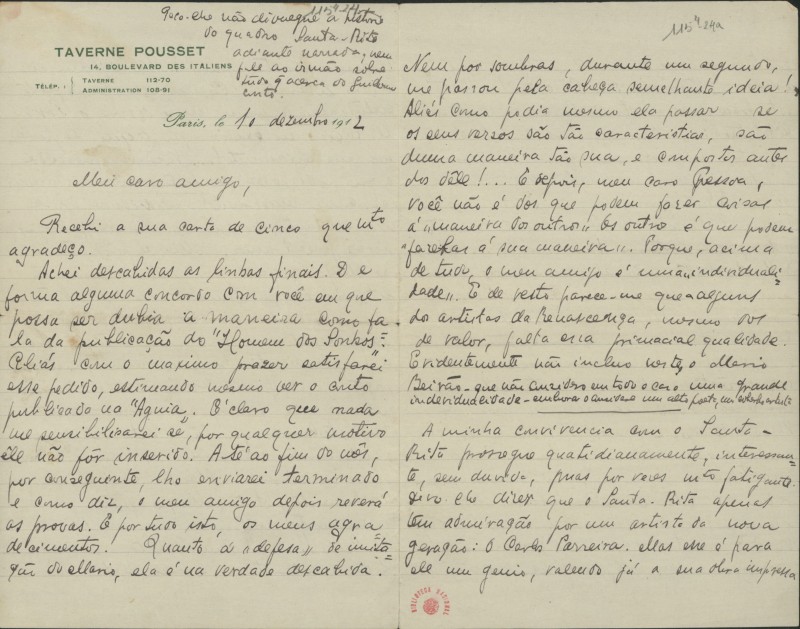 115⁴-24a
Peço-lhe não divulgue a historia
do quadro Santa-Rita
adiante narrada, nem
fale ao irmão sobre
tudo q acerca do Guilherme
conto.
TAVERNE POUSSET
14, BOULEVARD DES ITALIENS
TÉLÉP. : TAVERNE 112-70
ADMINISTRATION 108-91
Paris, le 10 dezembro 1912
Meu caro amigo,
Recebi a sua carta de cinco que mto
agradeço.
Achei descabidas as linhas finais. De
forma alguma concordo com você em que
possa ser dubia a maneira como fa-
la da publicação do "Homem dos Sonhos".
Aliás com o maximo prazer satisfarei
esse pedido, estimando mesmo ver o conto
publicado na "Aguia". É claro que nada
me sensibilisarei se, por qualquer motivo
ele não fôr inserido. Até ao fim do mês,
por conseguinte, lho enviarei terminado
e como diz, o meu amigo depois reverá
as provas. E por tudo isto, os meus agra
decimentos. Quanto á «defesa» de imita-
ção do Mario, ela é na verdade descabida.
115⁴-24a
Nem por sombras, durante um segundo,
me passou pela cabeça semelhante ideia!
Aliás como podia mesmo ela passar se
os seus versos são tão caracteristicos, são
duma maneira tão sua, e compostos antes
dos dêle!... E depois, meu caro Pessoa,
você não é dos que podem fazer coisas
á "maneira dos outros" Os outros é que podem
"fazê-las á sua maneira". Porque, acima
de tudo, o meu amigo é uma «individuali-
dade». E de resto parece-me que a alguns
dos artistas da Renascença, mesmo dos
de valor, falta essa primacial qualidade.
Evidentemente não incluo nestes o Mario
Beirão - que não considero em todo o caso uma grande
individualidade - embora o considere um alto poeta, um soberbo artista
A minha convivencia com o Santa-
Rita prosegue quotidianamente, interessan-
te, sem duvida, mas por vezes mto fatigante.
Devo-lhe dizer que o Santa-Rita apenas
tem admiração por um artista da nova
geração: o Carlos Parreira. Mas esse é para
ele um genio, valendo já a sua obra impressa
BIBLIOTECA NACIONAL